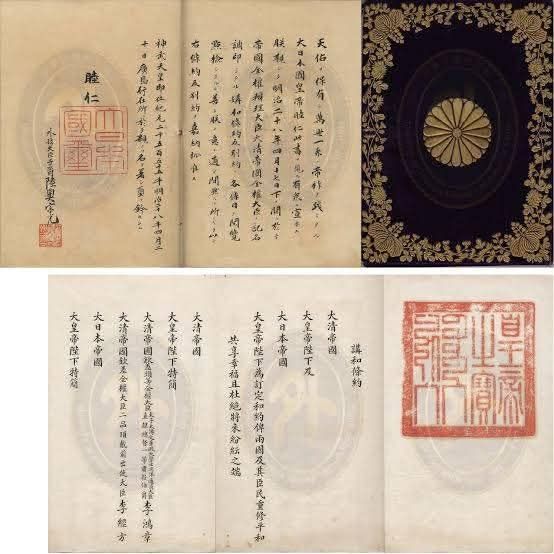 天佑ヲ保有シ萬世一系ノ帝祚ヲ踐ミタル
大日本國皇帝睦仁此書ヲ見ル有衆ニ宣示ス
朕觀ルニ明治二十八年四月十七日下ノ關ニ於テ
帝國全權辨理大臣大清帝國全權大臣ト記名
調印シタル媾和條約及別約ノ各條目ヲ閲覽
點檢シタルニ善ク朕カ意ニ適シ間然スル所ナキヲ以テ
右條約及別約ヲ嘉納批准ス
神武天皇即位紀元二千五百五十五年明治二十八年四月二
十日廣島行在所ニ於テ親ラ名ヲ著シ璽ヲ鈐セシム
睦仁
大日本國璽
外務大臣子爵陸奥宗光
皇帝之寶
講和條約
大清帝國
大皇帝陛下及
大日本帝國
大皇帝陛下爲訂定和約俾兩國及其臣民重修平和
共享幸福且杜絶將來紛紜之端
大清帝國
大皇帝陛下特簡
大清帝國欽差頭等全權大臣李鴻章
大清帝國欽差全權大臣二品頂戴前出使大臣李經方
大日本帝國
大皇帝陛下特簡